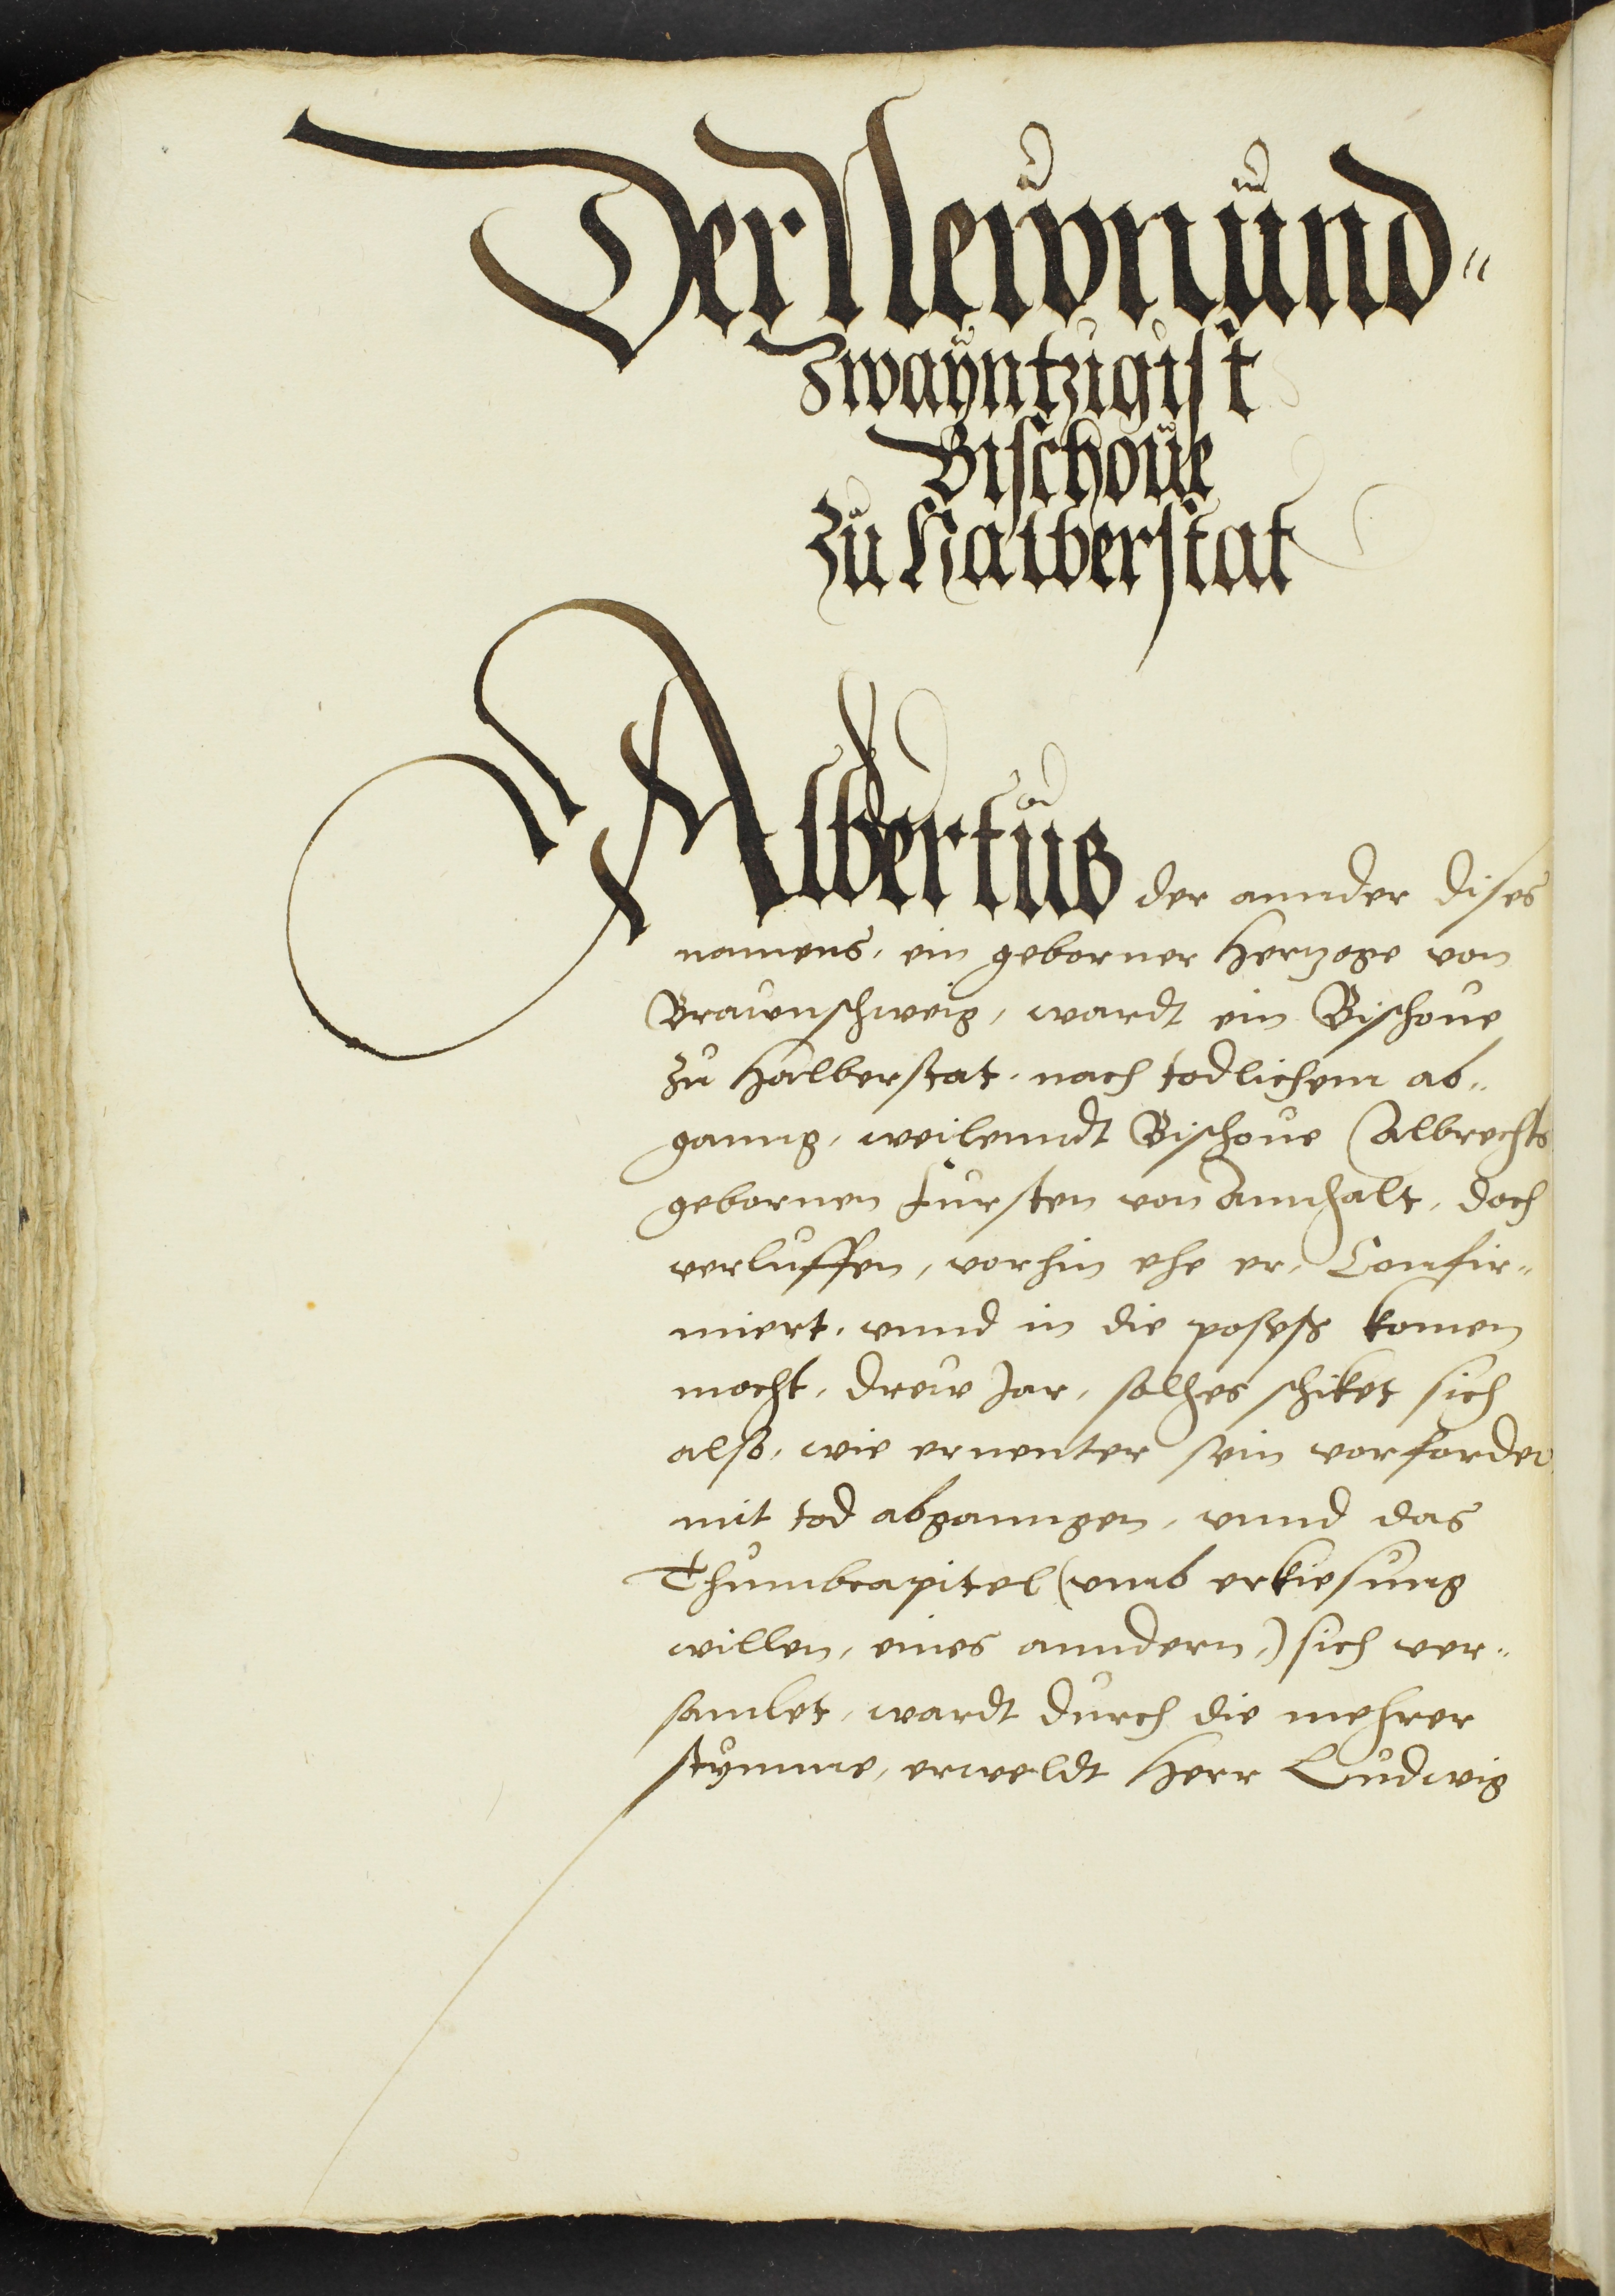 Der Newnund„
Zwayntzigist
Bischoue
Zu Halberstat
Albertus der annder dises
namens, ein geborner Hertzoge von
Braunschweig, wardt ein Bischoue
zu Halberstat, nach todlichem ab„
ganng, weilenndt Bischoue Albrechts
gebornen Fursten von Annhalt, doch
verluffen, vorhin ehe er, Confir„
miert, vnnd in die posess komen
mocht, drew Jar, solhes schiket sich
also, wie ernenter sein vorforder
mit tod abganngen, vnnd das
Thumbcapitel (vmb erkiesung
willen, eines anndern,) sich ver„
samlet, wardt durch die mehrer
stymme, erweldt Herr Ludwig